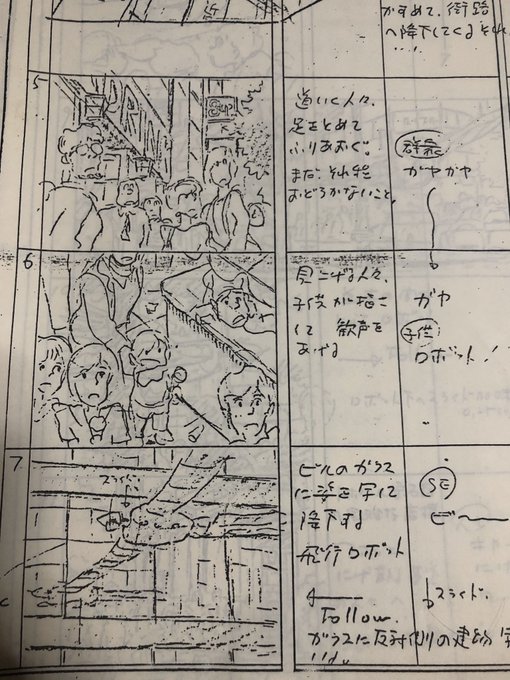 かすめて、街路
へ降下してくる
5
道いく人々、
足をとめて
ふりあおぐ。
まだ、それ程
おどろかないこと。
群衆
ガヤガヤ
6
見上げる人々、
子供が指さ
して 歓声を
あげる
ガヤ
子供
ロボット!
7
スライド
ビルのガラス
に姿を写して
降下する
飛行ロボット
Follow
ガラスに反対側の建物
SE
ビー
スライド.